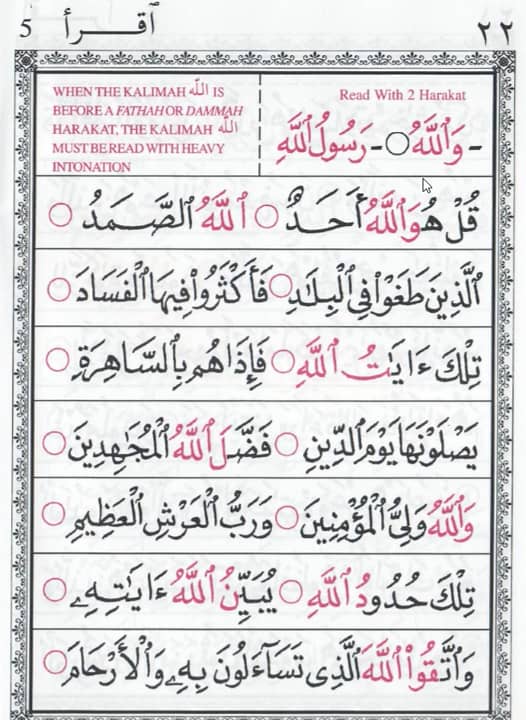 5 اقرأ ٢٢
WHEN THE KALIMAH ٱللَّه IS
BEFORE A FATHAH OR DAMMAH
HARAKAT, THE KALIMAH ٱللَّه
MUST BE READ WITH HEAVY
INTONATION
Read With 2 Harakat
- وَٱللَّهُ ○ - رَسُولُ ٱللَّهِ
قُلْ هُوَ ٱللَّهُ أَحَدٌ ○ ٱللَّهُ ٱلصَّمَدُ ○
ٱلَّذِينَ طَغَوْا۟ فِى ٱلْبِلَـٰدِ ○ فَأَكْثَرُوا۟ فِيهَا ٱلْفَسَادَ ○
تِلْكَ ءَايَـٰتُ ٱللَّهِ ○ فَإِذَا هُم بِٱلسَّاهِرَةِ ○
يَصْلَوْنَهَا يَوْمَ ٱلدِّينِ ○ فَضَّلَ ٱللَّهُ ٱلْمُجَـٰهِدِينَ ○
وَٱللَّهُ وَلِىُّ ٱلْمُؤْمِنِينَ ○ وَرَبُّ ٱلْعَرْشِ ٱلْعَظِيمِ ○
تِلْكَ حُدُودُ ٱللَّهِ ○ يُبَيِّنُ ٱللَّهُ ءَايَـٰتِهِۦ ○
وَٱتَّقُوا۟ ٱللَّهَ ٱلَّذِى تَسَآءَلُونَ بِهِۦ وَٱلْأَرْحَامَ ○